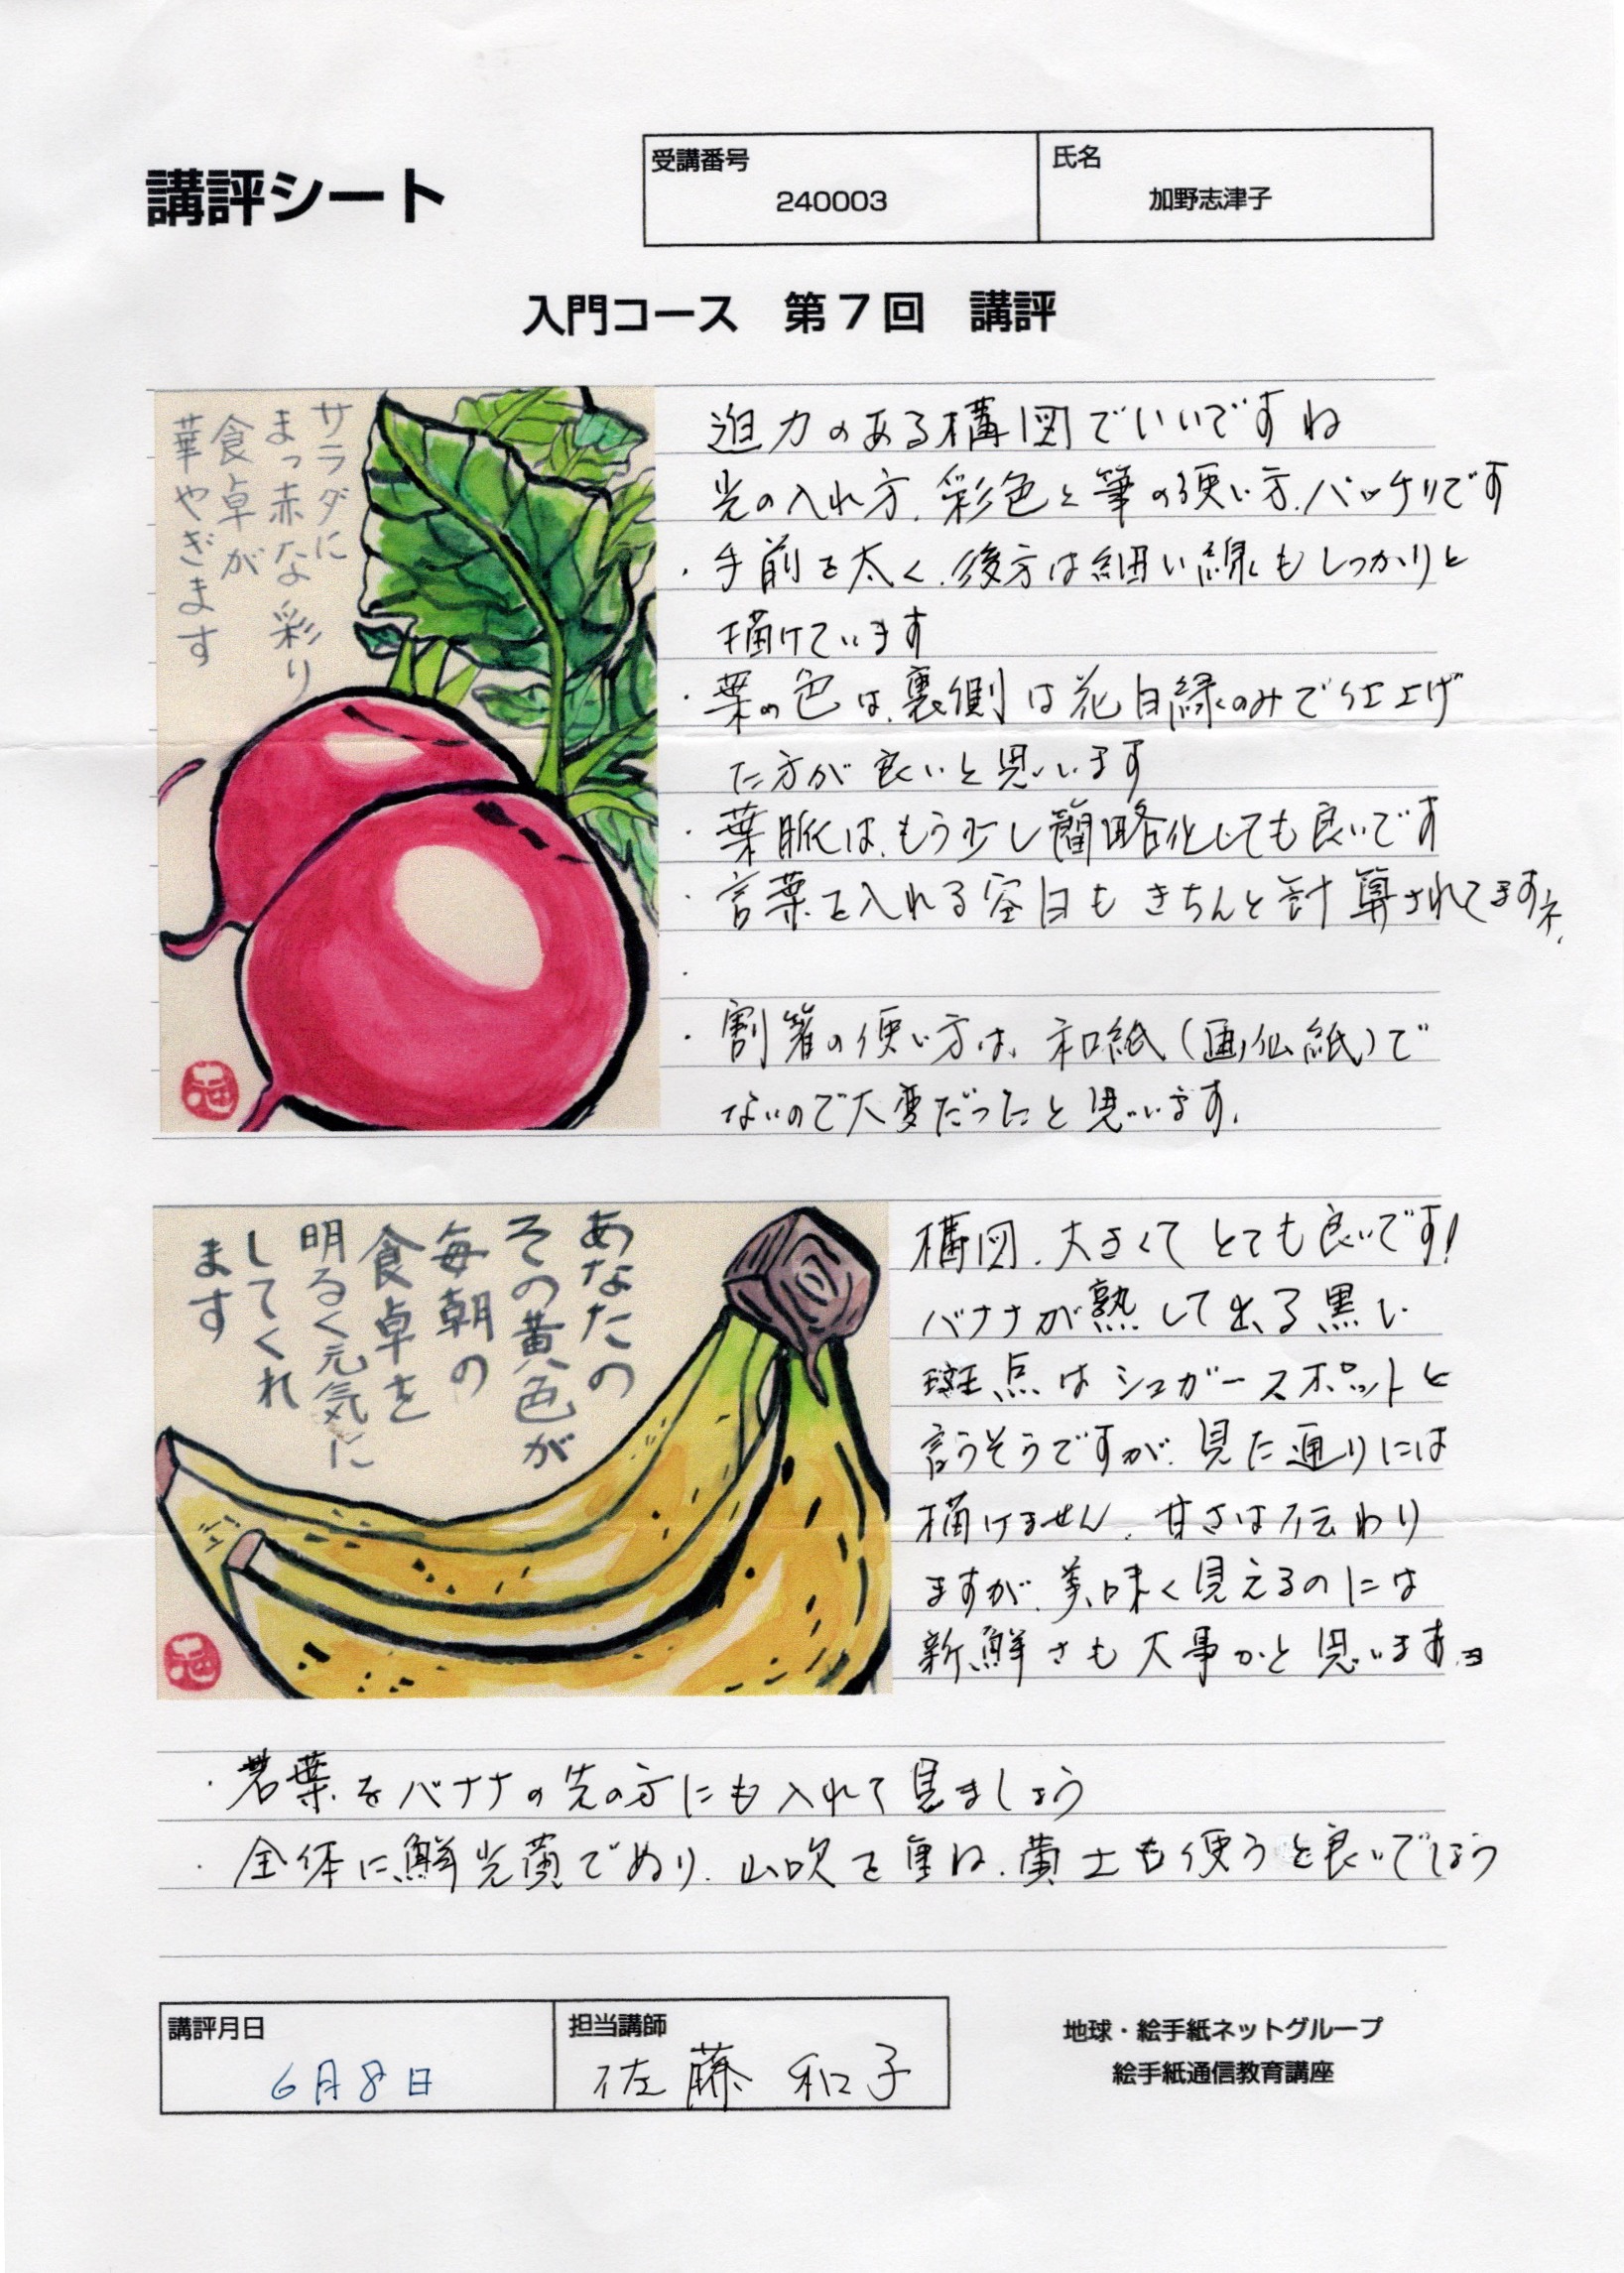 講評シート
受講番号
240003
氏名
加野志津子
入門コース 第7回 講評
サラダに
まっ赤な彩り
食卓が
華やぎます
迫力のある構図でいいですね
光の入れ方、彩色と筆の使い方、バッチリです
・手前を太く、後方は細い線もしっかりと
描けています
・葉の色は、裏側は花白緑のみで仕上げ
た方が良いと思います
・葉脈は、もう少し簡略化しても良いです
・言葉を入れる空白もきちんと計算されてますネ、
・
・割箸の使い方は、和紙(画仙紙)で
ないので大変だったと思います。
あなたの
その黄色が
毎朝の
食卓を
明るく元気に
してくれ
ます
構図、大きくてとても良いです!
バナナが熟して出る黒い
斑点はシュガースポットと
言うそうですが、見た通りには
描けません、甘さは伝わり
ますが、美味く見えるのには
新鮮さも大事かと思います。
・若葉をバナナの先の方にも入れて見ましょう
・全体に鮮光黄でぬり、山吹を重ね、黄土も使うと良いでしょう
講評月日
6月8日
担当講師
佐藤 和子
地球・絵手紙ネットグループ
絵手紙通信教育講座